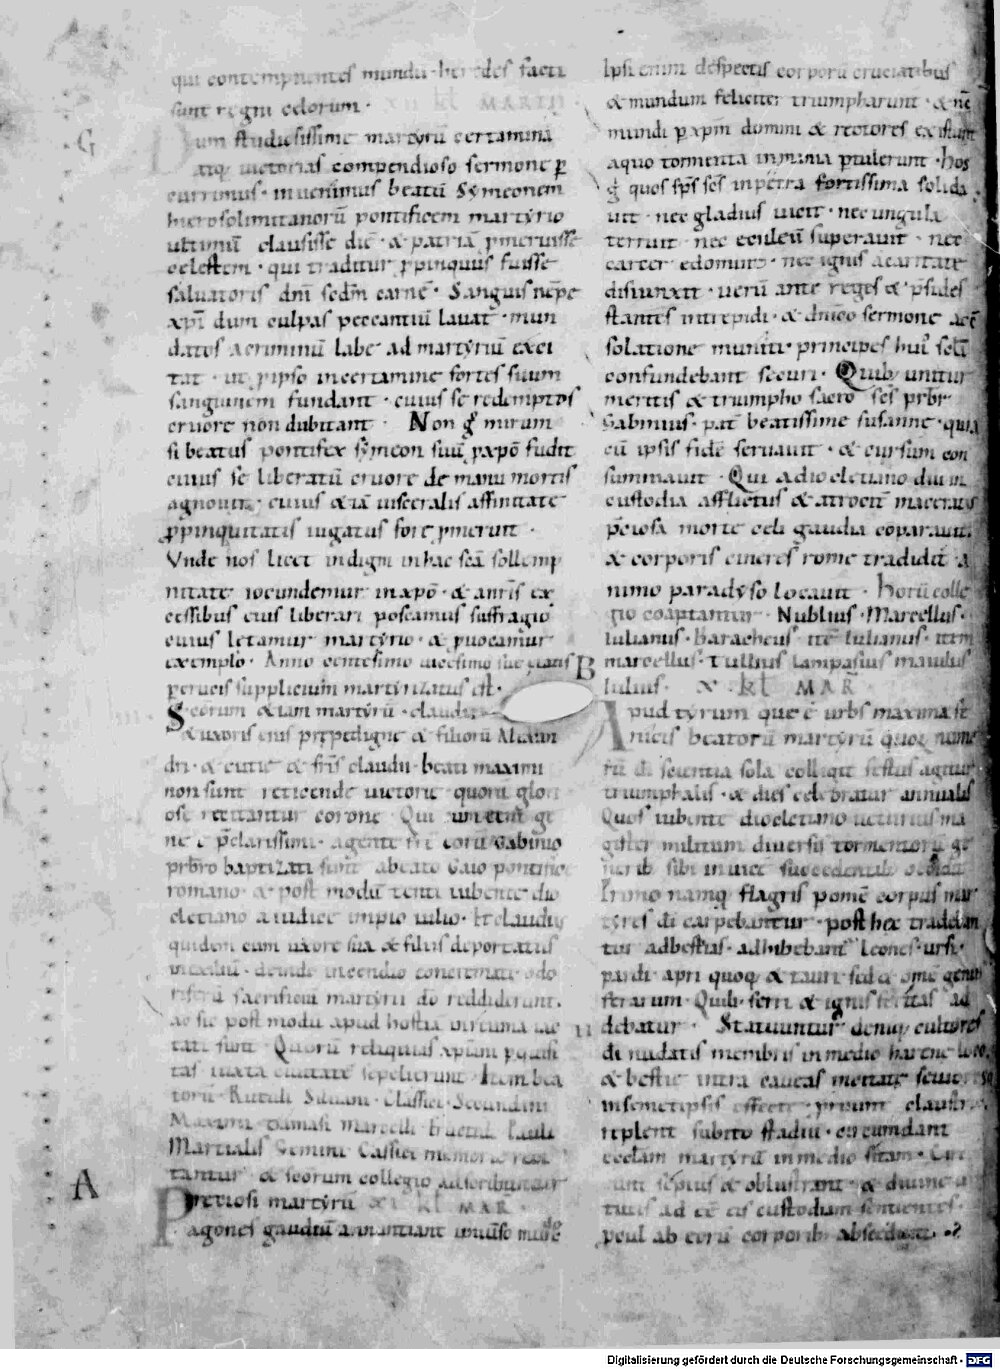 qui contempnentes mundū · heredes facti
sunt regni celorum · XII kł MARTII ·
G
Dum studiosissime martyrū certamina
atq; uictorias compendioso sermone ꝑ
currimus · inuenimus beatū Symeonem
hierosolimitanorū pontificem martyrio
ultimū clausisse diē · & patriā ꝓmeruisse
celestem · qui traditur ꝓpinquus fuisse
saluatoris dn̄i sedm carnē · Sanguis nēpe
xp̄i dum culpas peccantiū lauat · mun
datos a criminū labe ad martyriū exci
tat · ut ꝓ ipso in certamine fortes suum
sanguinem fundant · cuius se redemptos
cruore non dubitant · Non g̊ mirum
si beatus pontifex symeon suū ꝓ xp̄o fudit
cuius se liberatū cruore de manu mortis
agnouit · cuius & iā uisceralis affinitate
ꝓpinquitatis iugatus fore ꝓmeruit ·
Vnde nos licet indigni in hac sc̄a sollemp
nitate iocundemur in xp̄o · & a nr̄is ex
cessibus eius liberari poscamus suffragio
cuius letamur martyrio · & ꝓuocamur
exemplo · Anno centesimo uicesimo sue etatis
ꝑ crucis supplicium martyrizatus est ·
Sc̄orum etiam martyrū · claudii
& uxoris eius prepedigne & filiorū Alexan
dri · & cutie & fr̄is claudii · beati maximi
non sunt reticende uictorie · quorū glori
ose recitantur corone · Qui
ne ē p̄clarissimi · agente fr̄e eorū Gabinio
prb̄ro baptizati sunt a beato Gaio pontifice
romano · & post modū tenti iubente dio
cletiano a iudice impio iulio · & claudius
quidem cum uxore sua & filiis deportatus
in exiliū · deinde incendio concremati odo
riferū sacrificiū martyrii dō reddiderunt ·
ac sic post modū apud hostiā
tati sunt · Quorū reliquias xp̄iani ꝑquisi
tas iuxta ciuitatē sepelierunt · Item bea
torū · Rutuli Siluani · Classici · Secundini
Maximi damasi marcelli
Martialis Gemini Cassici memorie reci
tantur & sc̄orum collegio adscribuntur
A
Pretiosi martyrū XI kł MAR̄ ·
agones gaudiū annuntiant uniuerso mundo
Ipsi enim despectis corporū cruciatibus
& mundum feliciter triumpharunt · & nc̄
mundi ꝑ xp̄m domini & rectores existunt
a quo tormenta inmania ꝑtulerunt · hos
g̊ quos sp̄s sc̄s in petra fortissima solida
uit · nec gladius uicit · nec ungula
terruit · nec eculeū superauit · nec
carcer edomuit · nec ignis a caritate
disiunxit · uerū ante reges & p̄sides
stantes intrepidi · & dn̄ico sermone ac cō
solatione muniti · principes hui' sclī
confundebant securi · Quib; unitur
meritis & triumpho sacro sc̄s prb̄r
Gabinius · pat̄ beatissime susanne · quia
cū ipsis fidē seruauit · & cursum con
summauit · Qui a diocletiano diu in
custodia afflictus & atrociū maceratus
p̄ciosa morte celi gaudia cōparauit
& corporis cineres rome tradidit · a
nimo paradyso locauit · Horū colle
gio coaptantur · Nublius · Marcellus ·
Iulianus · baracheus · itē Iulianus · item
marcellus · Tullius lampasius maiulus
B
Iulius · X · kł MAR̄
Apud tyrum que ē urbs maxima fe
nicis beatorū martyrū quoƶ nume
rū dī scientia sola colligit festus agitur
triumphalis · & dies celebratur annualis
Quos iubente diocletiano ueturius ma
gister militum diuersis tormentorū ge
nerib; sibi inuicē succedentib; occidit
Primo namq; flagris ꝑ omē corpus mar
tyres dī carpebantur · post hec tradeban
tur ad bestias · adhibebant̄ leones · ursi ·
pardi · apri quoq; & tauri sed & ōme genus
ferarum · Quib; ferri & ignis feritas ad
debatur · Statuuntur deniq; cultores
dī nudatis membris in medio harene loco
& bestie intra caueas
in semetipsis effecte · ꝓruunt claustris
replent subito stadiū · circumdant
ecclam martyrū in medio sitam · Cir
cum sepius & oblustrant · & diuine uir
tutis adēē eis custodiam sentientes ·
ꝓcul ab eorū corporib; abscedunt ·
Digitalisierung gefördert durch die Deutsche Forschungsgemeinschaft - DFG